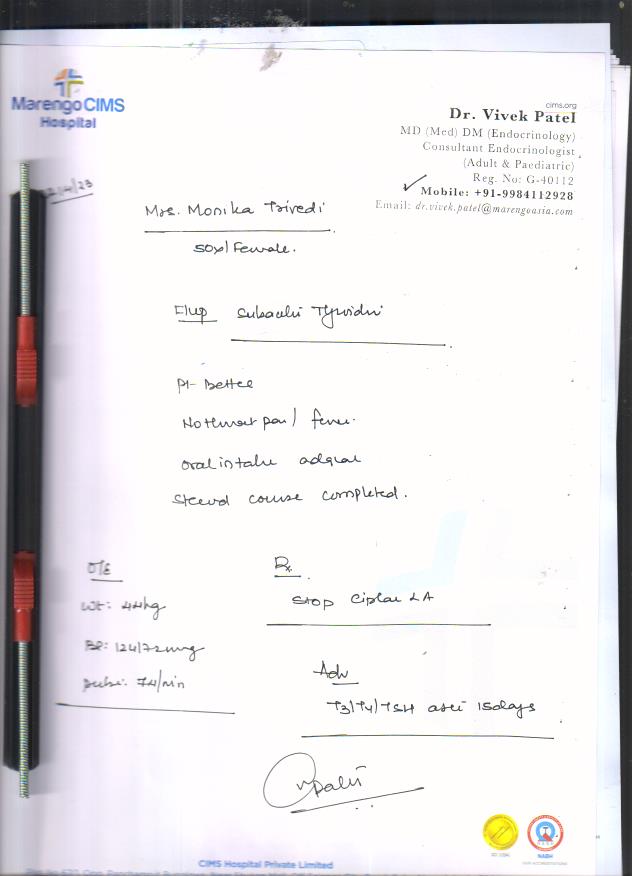 Marengo CIMS
Hospital
cims.org
Dr. Vivek Patel
MD (Med) DM (Endocrinology)
Consultant Endocrinologist
(Adult & Paediatric)
Reg. No: G-40112
Mobile: +91-9984112928
Email: dr.vivek.patel@marengoasia.com
/4/23
Mrs. Monika Trivedi
50y/Female.
F/up Subacute Thyroiditis
Pt- Better
No throat pain / fever.
Oral intake adequate
Steroid course completed.
O/E
Wt: 44kg
BP: 124/72mmHg
pulse: 74/min
Rx.
Stop Ciplar LA
Adv
T3/T4/TSH after 15days
vpatel
NABH
CIMS Hospital Private Limited